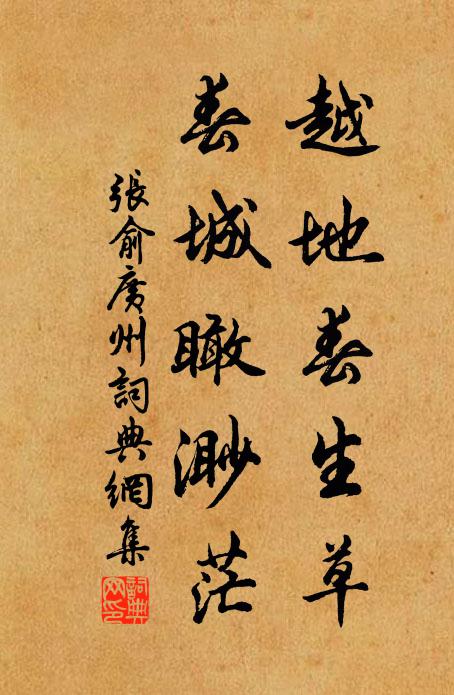 越地春生草
春城瞰渺茫
張俞廣州詞典網集
詞典網印